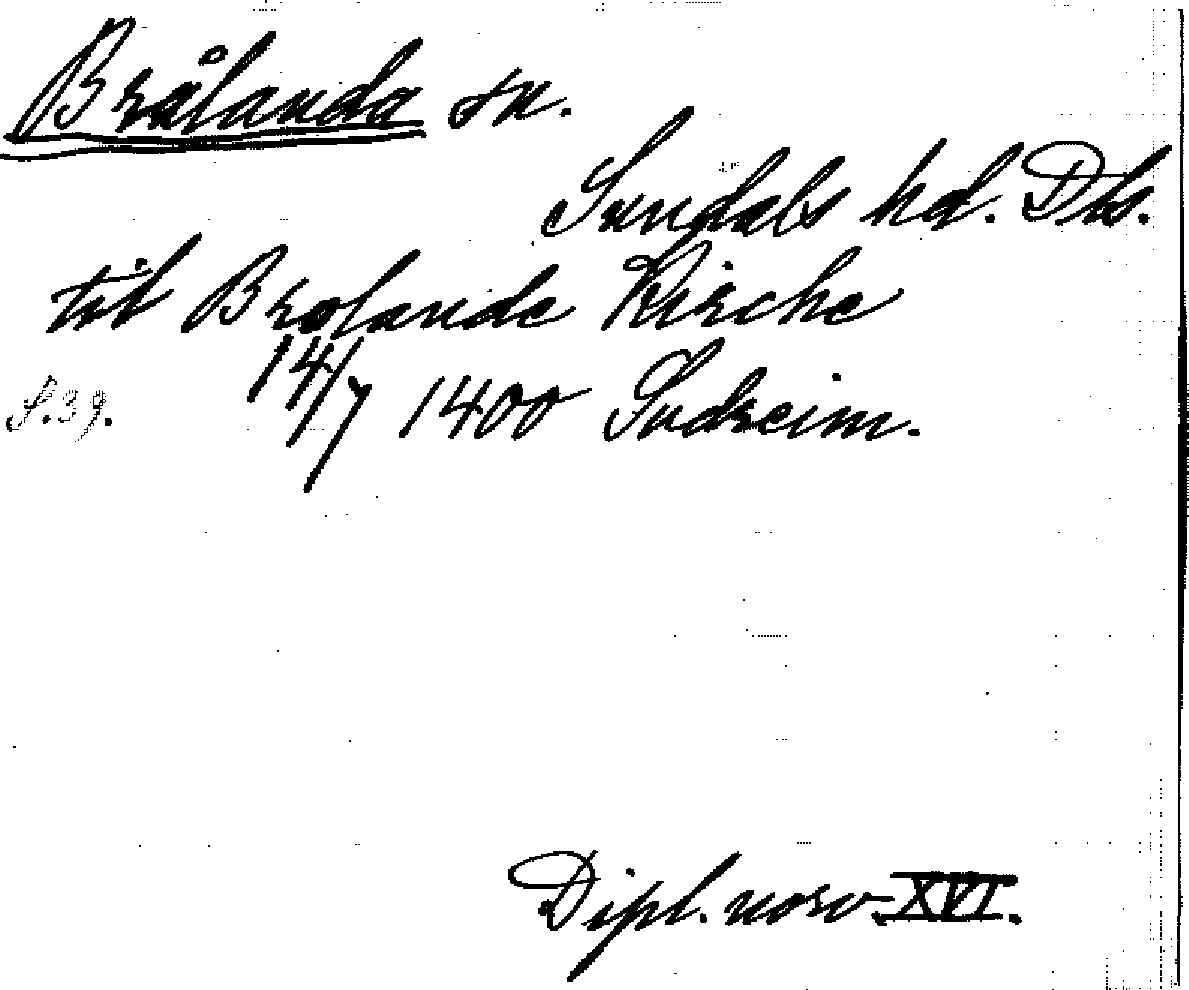 Brålanda sn.
Sundals hd. Dls.
til Brolande Kirche
S.39. 14/7 1400 Sudreim.
Dipl. norv. XVI.